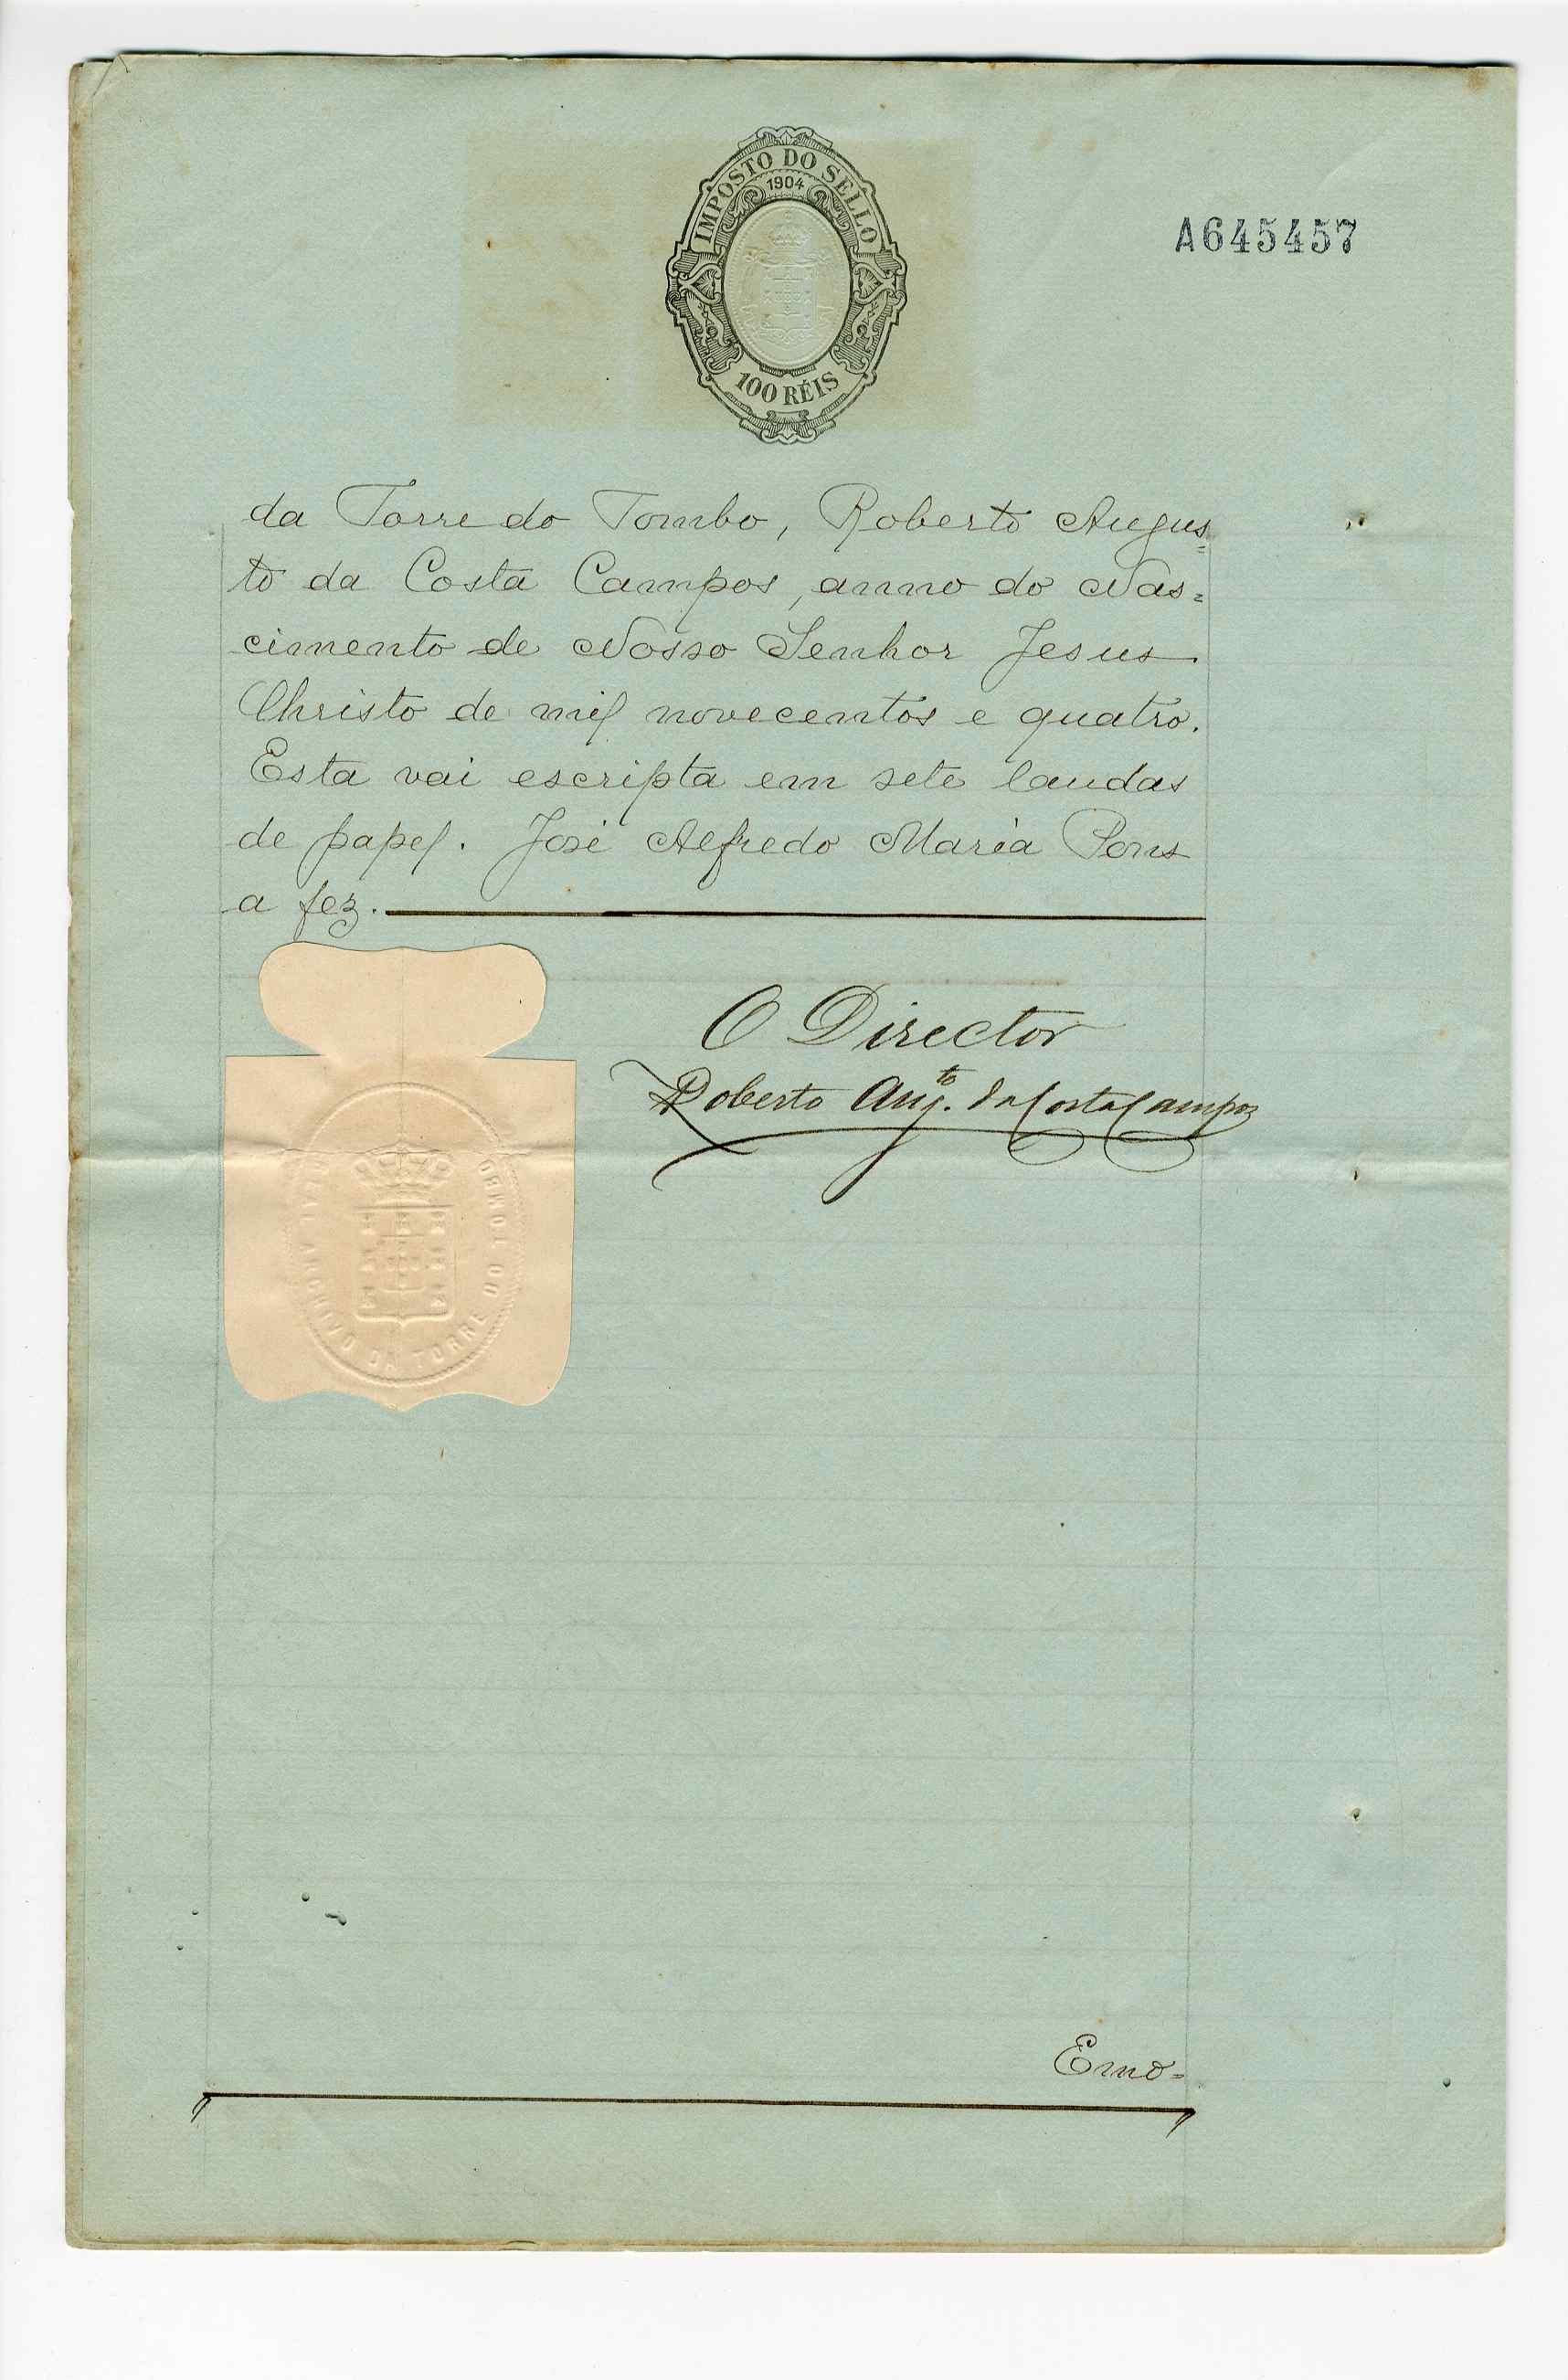 IMPOSTO DO SELLO
1904
100 RÉIS
A645457
da Torre do Tombo, Roberto Augus=
to da Costa Campos, anno do Nas=
cimento de Nosso Senhor Jesus
Christo de mil novecentos e quatro.
Esta vai escripta em sete laudas
de papel. José Alfredo Maria Pons
a fez.
O Director
Roberto Aug.to da Costa Campos
ARCHIVO DA TORRE DO TOMBO
Emo=